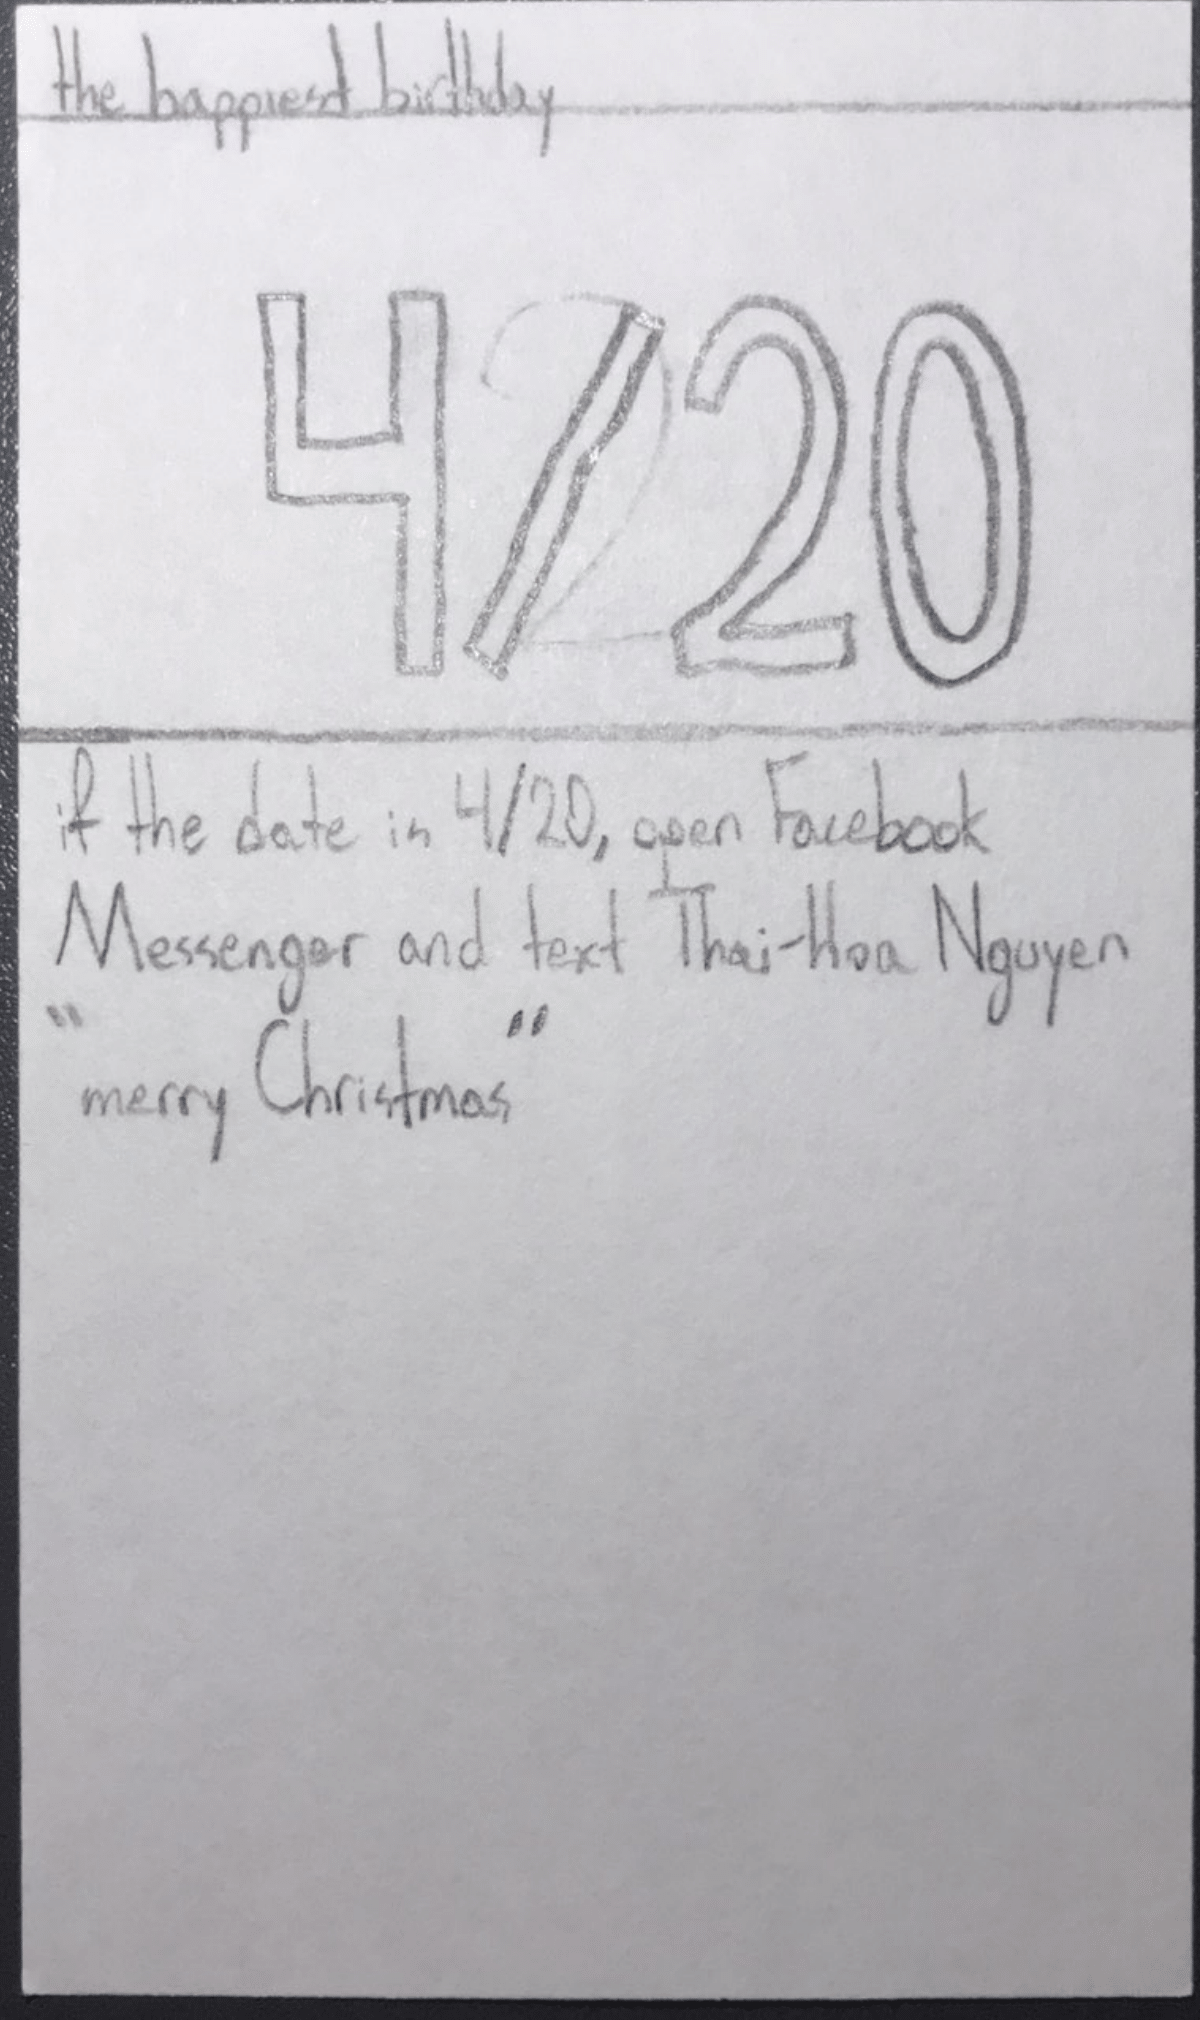 the happiest birthday
4/20
if the date is 4/20, open Facebook
Messenger and text Thai-Hoa Nguyen
"merry Christmas"